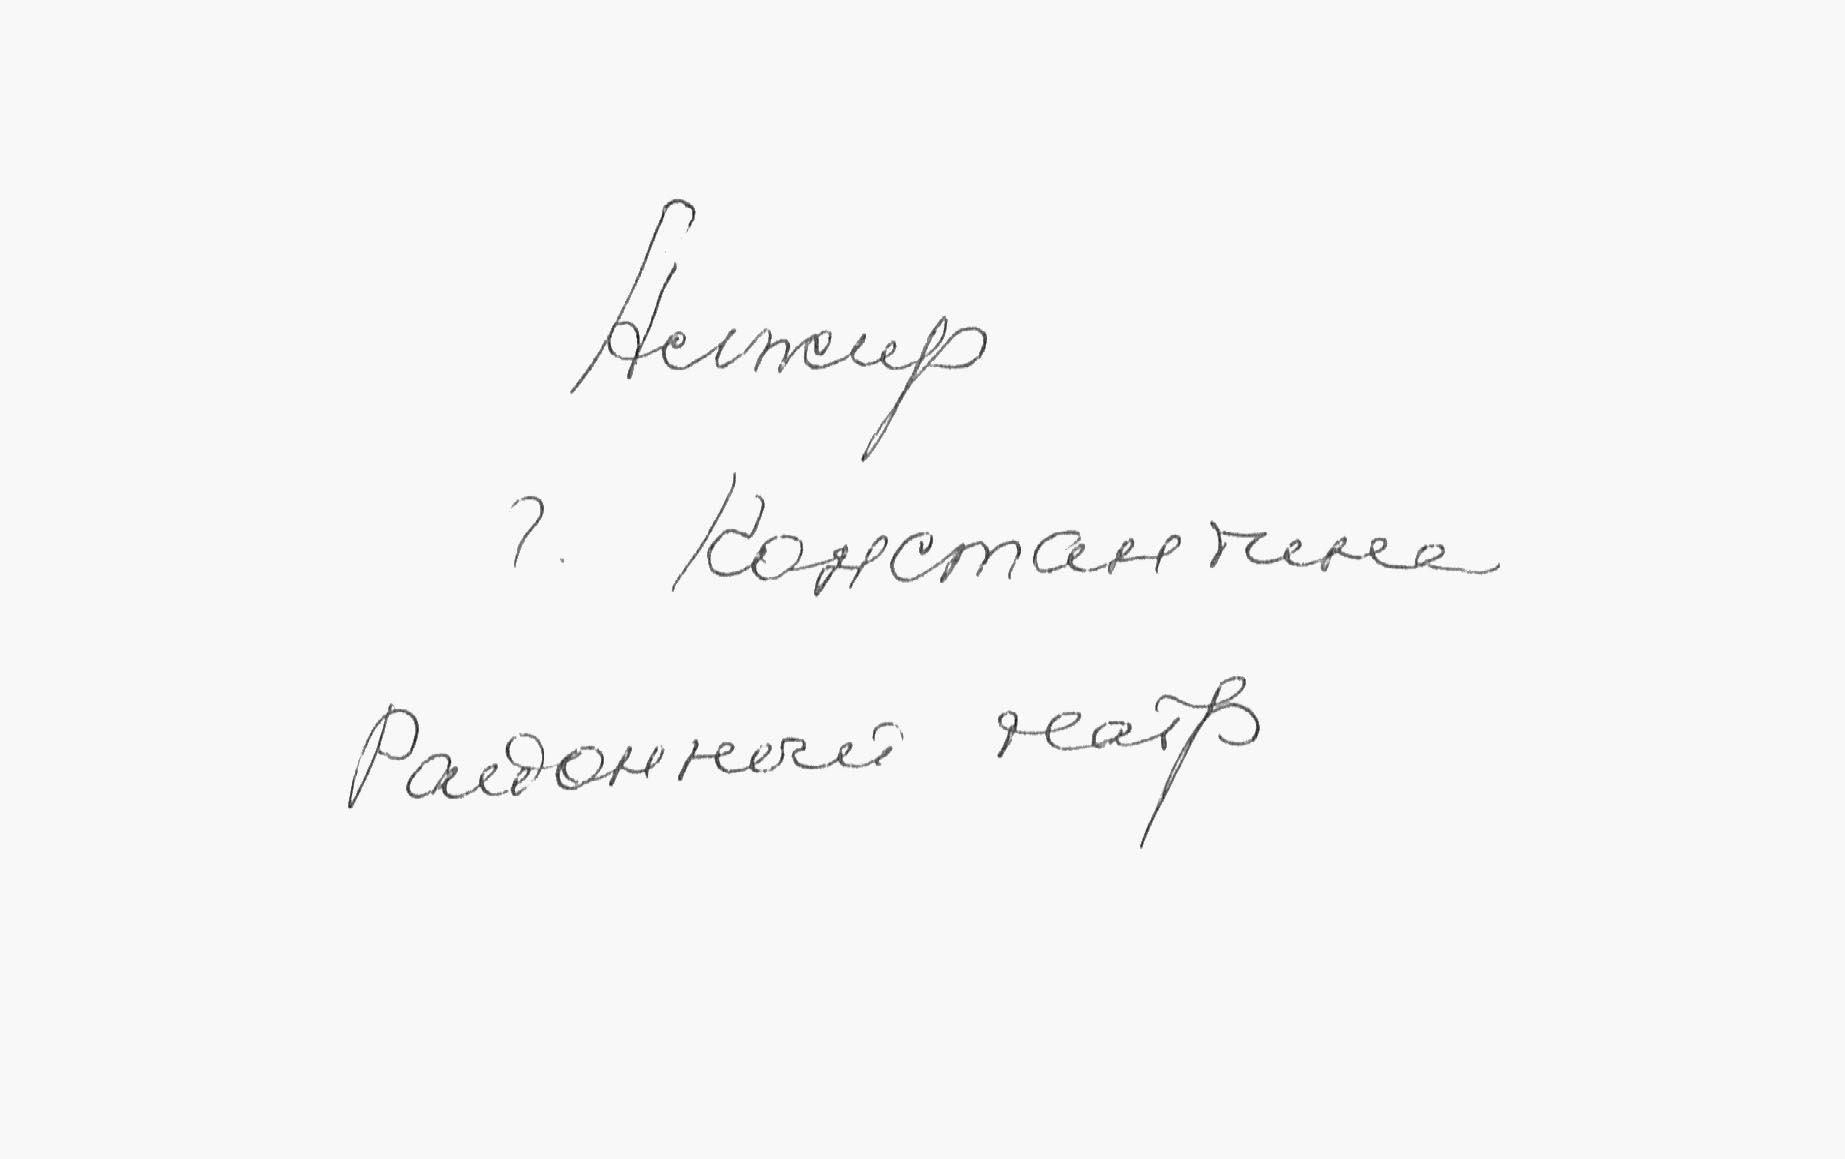 Алжир
г. Константина
Районный театр